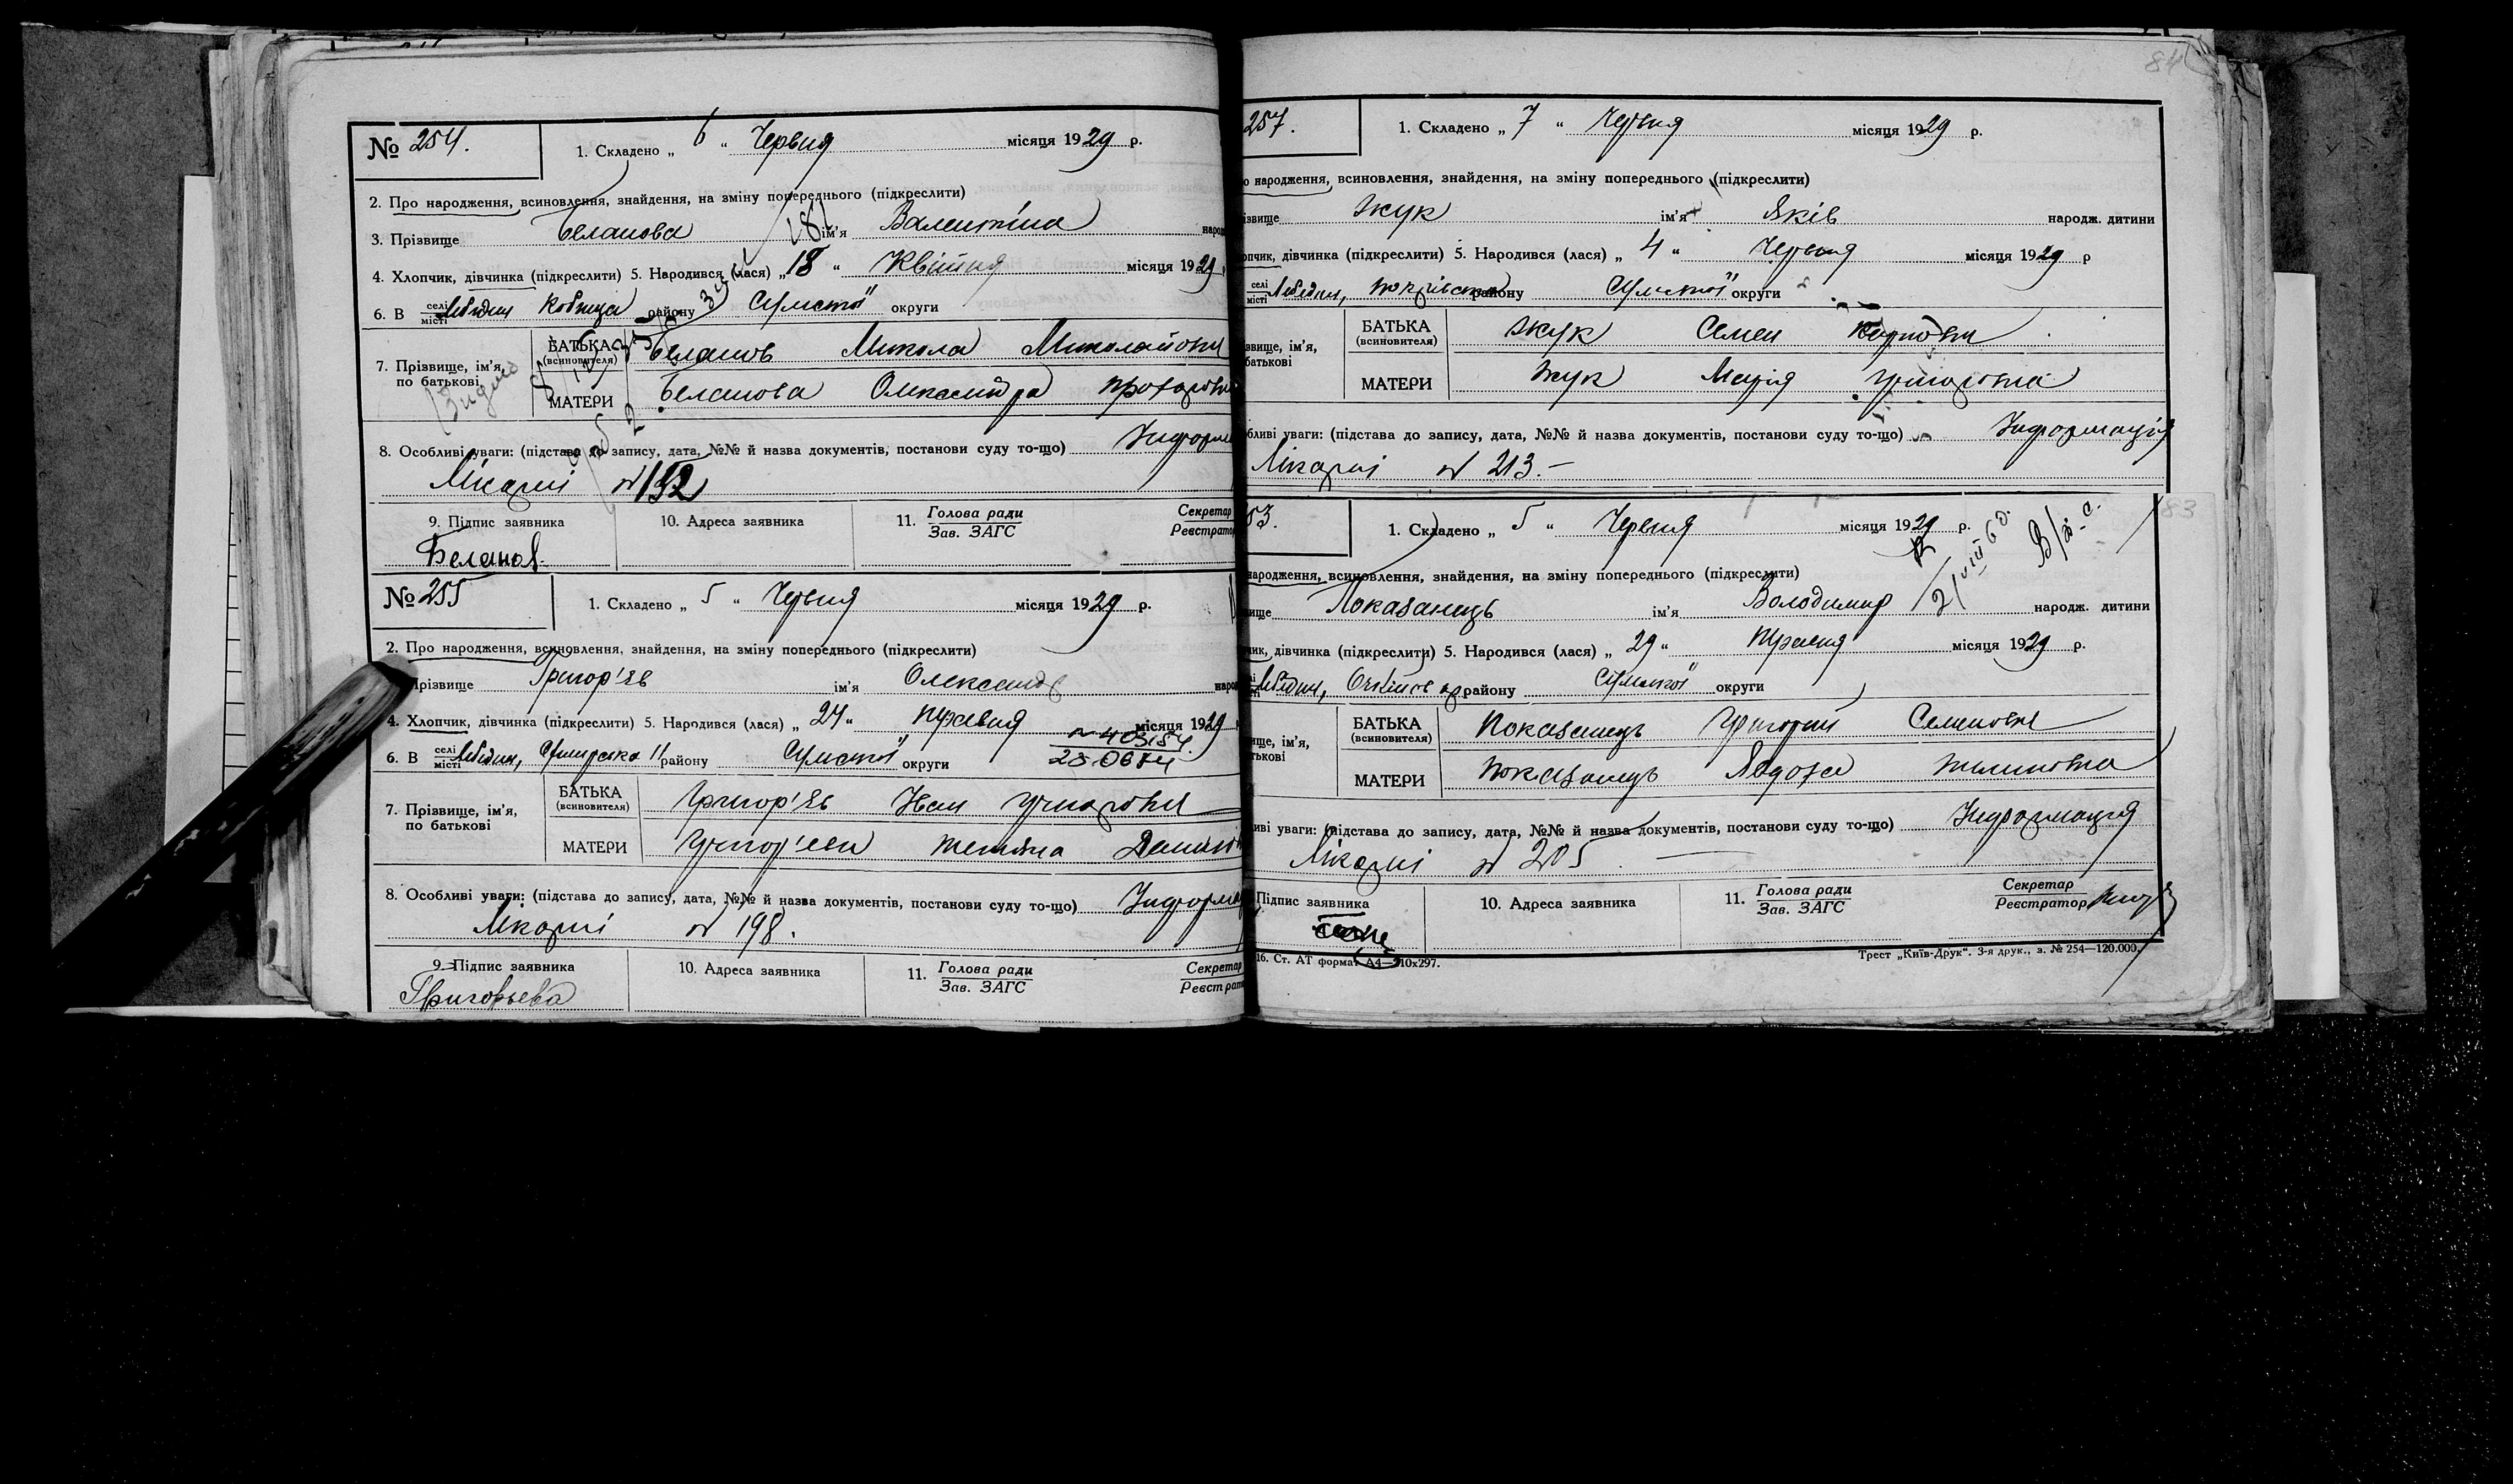 № 254.
1. Складено „ 6 “ Червня місяця 1929 р.
2. Про народження, всиновлення, знайдення, на зміну попереднього (підкреслити)
3. Прізвище Беланова ім'я Валентіна
4. Хлопчик, дівчинка (підкреслити) 5. Народився (лася) „ 18 “ Квітня місяця 1929
6. В селі місті Лебедин району Сумської округи
7. Прізвище, ім'я, по батькові
БАТЬКА (всиновителя) Беланов Микола Миколайович
МАТЕРИ Беланова Олександра
8. Особливі уваги: (підстава до запису, дата, №№ й назва документів, постанови суду то-що)
Лікарні № 192
9. Підпис заявника 10. Адреса заявника 11. Голова ради Зав. ЗАГС Секретар
Беланов
№ 255
1. Складено „ 5 “ Червня місяця 1929 р.
2. Про народження, всиновлення, знайдення, на зміну попереднього (підкреслити)
Прізвище Григор'єв ім'я Олександр
4. Хлопчик, дівчинка (підкреслити) 5. Народився (лася) „ 24 “ Травня місяця 1929
6. В селі місті Лебедин, району Сумської округи
7. Прізвище, ім'я, по батькові
БАТЬКА (всиновителя) Григор'єв Іван Григорович
МАТЕРИ Тетяна
8. Особливі уваги: (підстава до запису, дата, №№ й назва документів, постанови суду то-що)
Лікарні № 198.
9. Підпис заявника 10. Адреса заявника 11. Голова ради Зав. ЗАГС Секретар
Григорьева
84
257.
1. Складено „ 7 “ Червня місяця 1929 р.
народження, всиновлення, знайдення, на зміну попереднього (підкреслити)
Жук ім'я Яків народж. дитини
дівчинка (підкреслити) 5. Народився (лася) „ 4 “ Червня місяця 1929 р
селі місті Лебедин, району Сумської округи
БАТЬКА (всиновителя) Жук Семен Карпович
МАТЕРИ Жук Марія Григоровна
уваги: (підстава до запису, дата, №№ й назва документів, постанови суду то-що) Інформація
Лікарні № 213.–
83
53.
1. Складено „ 5 “ Червня місяця 1929 р.
народження, всиновлення, знайдення, на зміну попереднього (підкреслити)
Показанець ім'я Володимир народж. дитини
дівчинка (підкреслити) 5. Народився (лася) „ 29 “ Травня місяця 1929 р.
Лебедин, району Сумської округи
БАТЬКА (всиновителя) Показанець Григорий Семенович
МАТЕРИ Показанець
уваги: (підстава до запису, дата, №№ й назва документів, постанови суду то-що) Інформація
Лікарні № 205
Підпис заявника 10. Адреса заявника 11. Голова ради Зав. ЗАГС Секретар Реєстратор
16. Ст. АТ формат А4—210х297.
Трест „Київ-Друк“. 3-я друк., з. № 254—120.000.